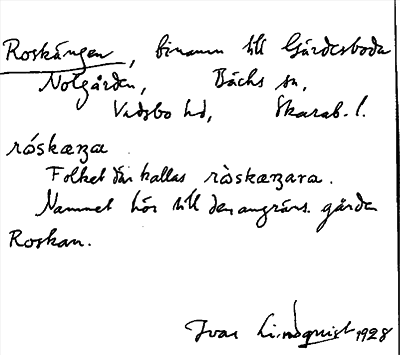 Roskängen, binamn till Gårdesboda
Notgården, Bäcks sn,
Vadsbo hd, Skarab. l.
róskæŋa
Folket där kallas ròskæŋara.
Namnet hör till den angräns. gården
Roskan.
Ivar Lindquist 1928